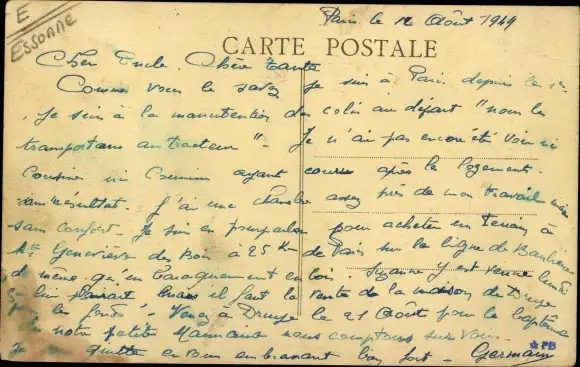 E
Essonne
Paris le 12 Août 1949
CARTE POSTALE
Cher Oncle. Chère Tante
Comme vous le savez Je suis à Paris depuis le 1er
Je suis à la manutention des colis au départ "nous les
transportons au tracteur" - Je n'ai pas encore été voir ni
Cousine ni Cousins ayant couru après le logement.
sans résultat. J'ai une chambre assez près de mon travail mais
sans confort. Je suis en pourparler pour acheter un Terrain à
Ste Geneviève des Bois à 25 Km de Paris sur la ligne de Banlieue
et même qu'un baraquement en bois Suzanne y est venue lundi
lui plairait mais il faut la vente de la maison de Druye
les fonds. Venez à Druye le 21 Août pour le baptême
de notre petite nous comptons sur vous.
Je vous quitte en vous embrassant bien fort - Germain
PB